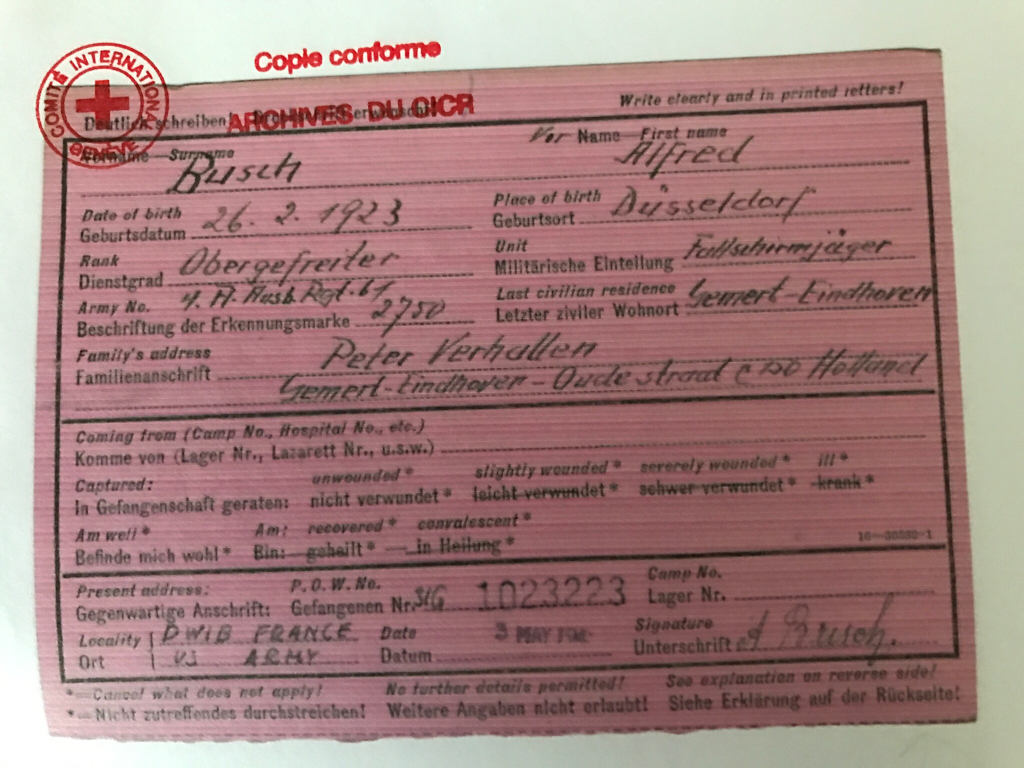 Copie conforme
COMITÉ INTERNATIONAL GENÈVE
ARCHIVES DU CICR
Deutlich schreiben!
Write clearly and in printed letters!
Surname Busch
Vor Name First name Alfred
Date of birth
Geburtsdatum 26. 2. 1923
Place of birth
Geburtsort Düsseldorf
Rank
Dienstgrad Obergefreiter
Unit
Militärische Einteilung Fallschirmjäger
Army No.
Beschriftung der Erkennungsmarke 2750
Last civilian residence
Letzter ziviler Wohnort Gemert-Eindhoven
Family's address
Familienanschrift Peter Verhallen
Gemert-Eindhoven - Oude straad Holland
Coming from (Camp No., Hospital No., etc.)
Komme von (Lager Nr., Lazarett Nr., u.s.w.)
Captured: unwounded* slightly wounded* severely wounded* ill*
In Gefangenschaft geraten: nicht verwundet* leicht verwundet* schwer verwundet* krank*
Am well* Am: recovered* convalescent*
Befinde mich wohl* Bin: geheilt* in Heilung*
Present address: P.O.W. No.
Gegenwärtige Anschrift: Gefangenen Nr. 1023223
Camp No.
Lager Nr.
Locality
Ort DWIB FRANCE
US ARMY
Date
Datum 3 MAY
Signature
Unterschrift A Busch.
*—Cancel what does not apply! No further details permitted! See explanation on reverse side!
*—Nicht zutreffendes durchstreichen! Weitere Angaben nicht erlaubt! Siehe Erklärung auf der Rückseite!